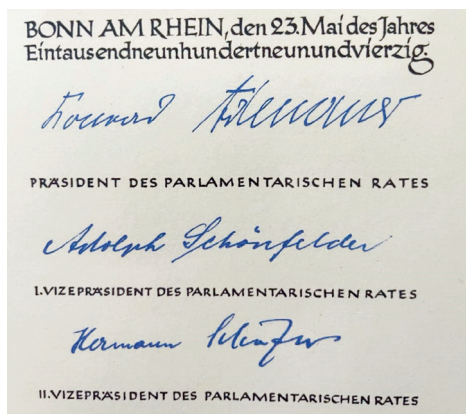 BONN AM RHEIN, den 23. Mai des Jahres
Eintausendneunhundertneunundvierzig.
Konrad Adenauer
PRÄSIDENT DES PARLAMENTARISCHEN RATES
Adolph Schönfelder
I. VIZEPRÄSIDENT DES PARLAMENTARISCHEN RATES
Hermann Schäfer
II. VIZEPRÄSIDENT DES PARLAMENTARISCHEN RATES